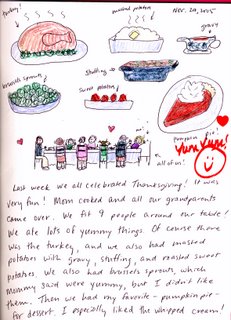 turkey!
mashed potatoes
Nov. 29, 2005
gravy
Stuffing
brussels sprouts
Sweet potatoes
Pumpkin pie!
Yum Yum!
me!
all of us!
Last week we all celebrated Thanksgiving! It was
very fun! Mom cooked and all our grandparents
came over. We fit 9 people around our table!
We ate lots of yummy things. Of course there
was the turkey, and we also had mashed
potatoes with gravy, stuffing, and roasted sweet
potatoes. We also had brussels sprouts, which
Mommy said were yummy, but I didn't like
them. Then we had my favorite - pumpkin pie -
for dessert. I especially liked the whipped cream!